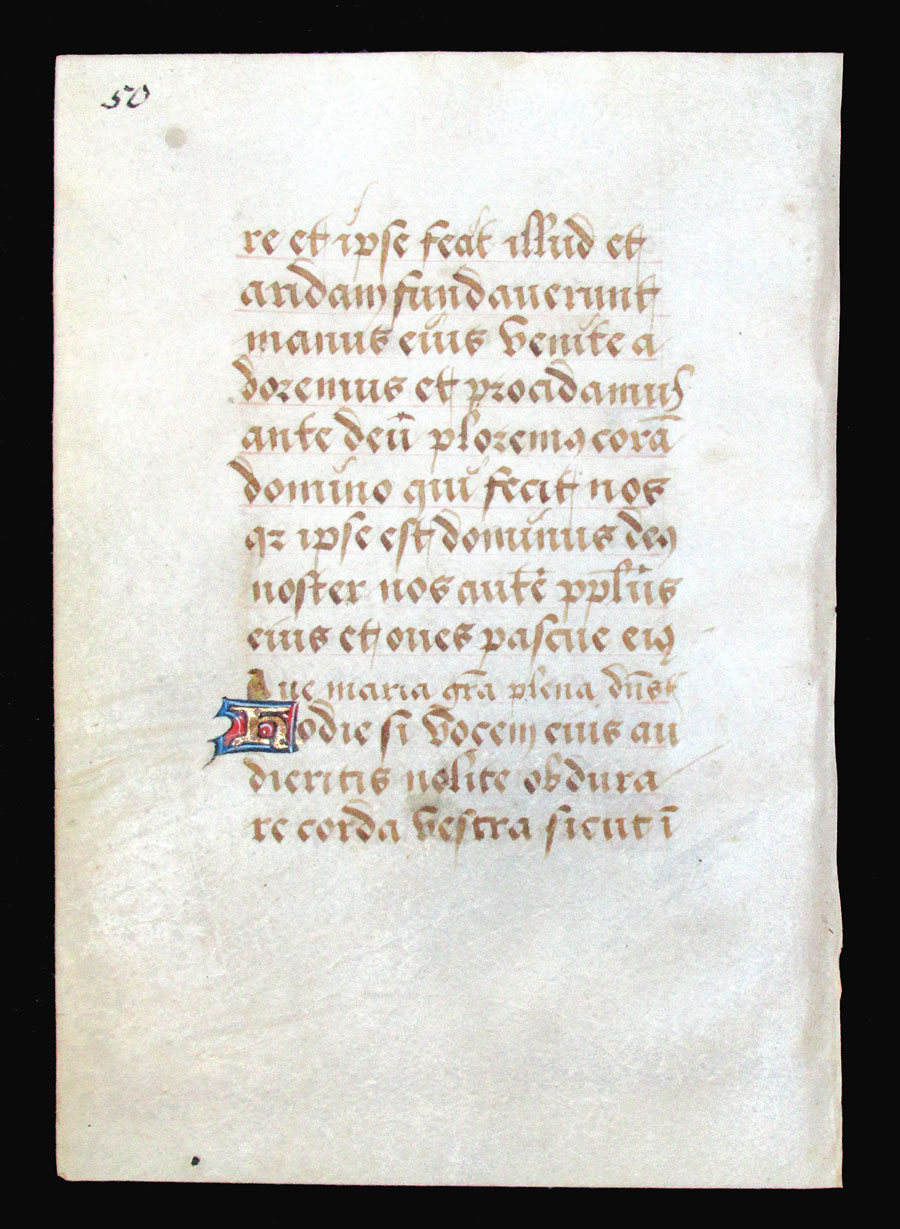 50
re et ipse fecit illud et
aridam fundaverunt
manus eius Venite a
doremus et procidamus
ante deū ploremꝯ corā
domino qui fecit nos
qꝛ ipse est dominus deꝯ
noster nos autē pplūs
eius et oves pascue eiꝯ
Ave maria grā plena dn̄s t
Hodie si vocem eius au
dieritis nolite obdura
re corda vestra sicut ī